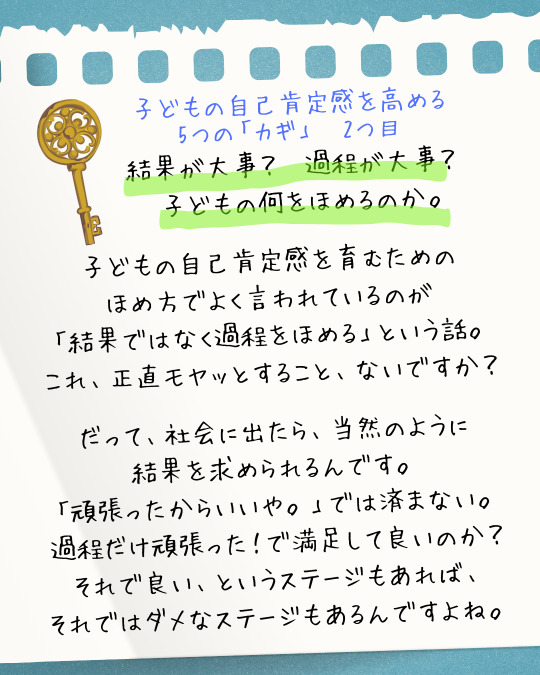 子どもの自己肯定感を高める
5つの「カギ」 2つ目
結果が大事? 過程が大事?
子どもの何をほめるのか。
子どもの自己肯定感を育むための
ほめ方でよく言われているのが
「結果ではなく過程をほめる」という話。
これ、正直モヤッとすること、ないですか?
だって、社会に出たら、当然のように
結果を求められるんです。
「頑張ったからいいや。」では済まない。
過程だけ頑張った!で満足して良いのか?
それで良い、というステージもあれば、
それではダメなステージもあるんですよね。